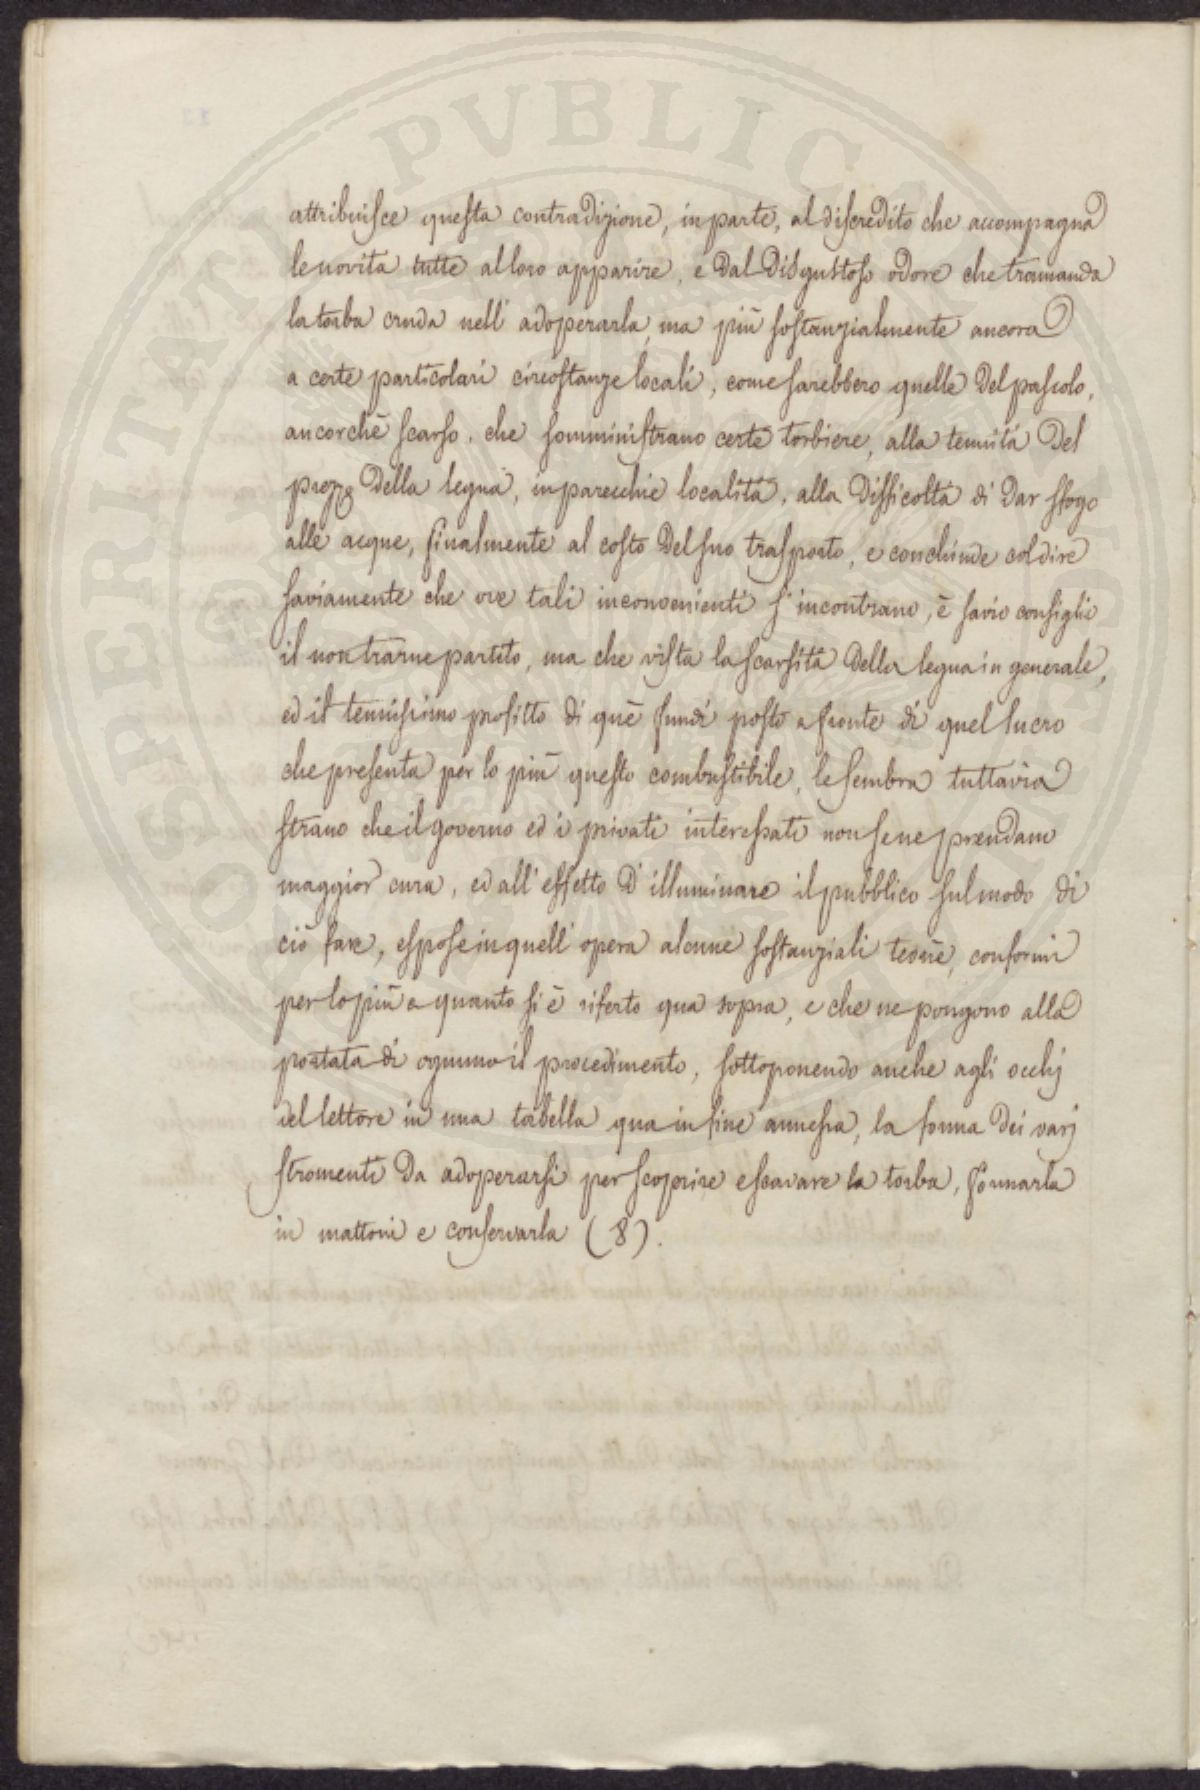 PROSPERITATI PVBLICAE
attribuisce questa contradizione, in parte, al discredito che accompagna
le novità tutte al loro apparire, e dal disgustoso odore che tramanda
la torba cruda nell' adoperarla, ma più sostanzialmente ancora
a certe particolari circostanze locali, come sarebbero quelle del pascolo,
ancorchè scarso, che somministrano certe torbiere, alla tenuità del
prezzo della legna, in parecchie località, alla difficoltà di dar sfogo
alle acque, finalmente al costo del suo trasporto, e conchiude col dire
saviamente che ove tali inconvenienti s' incontrano, è savio consiglio
il non trarne partito, ma che vista la scarsità della legna in generale,
ed il tenuissimo profitto di què fundi posto a fronte di quel lucro
che presenta per lo più questo combustibile, le sembra tuttavia
strano che il governo ed i privati interessati non se ne prendano
maggior cura, ed all' effetto d' illuminare il pubblico sul modo di
ciò fare, espose in quell' opera alcune sostanziali teorie, conformi
per lo più a quanto si è riferto qua sopra, e che ne pongono alla
portata di ognuno il procedimento, sottoponendo anche agli occhj
del lettore in una tabella qua in fine annessa, la forma dei varj
stromenti da adoperarsi per scoprire escavare la torba, formarla
in mattoni e conservarla (8).